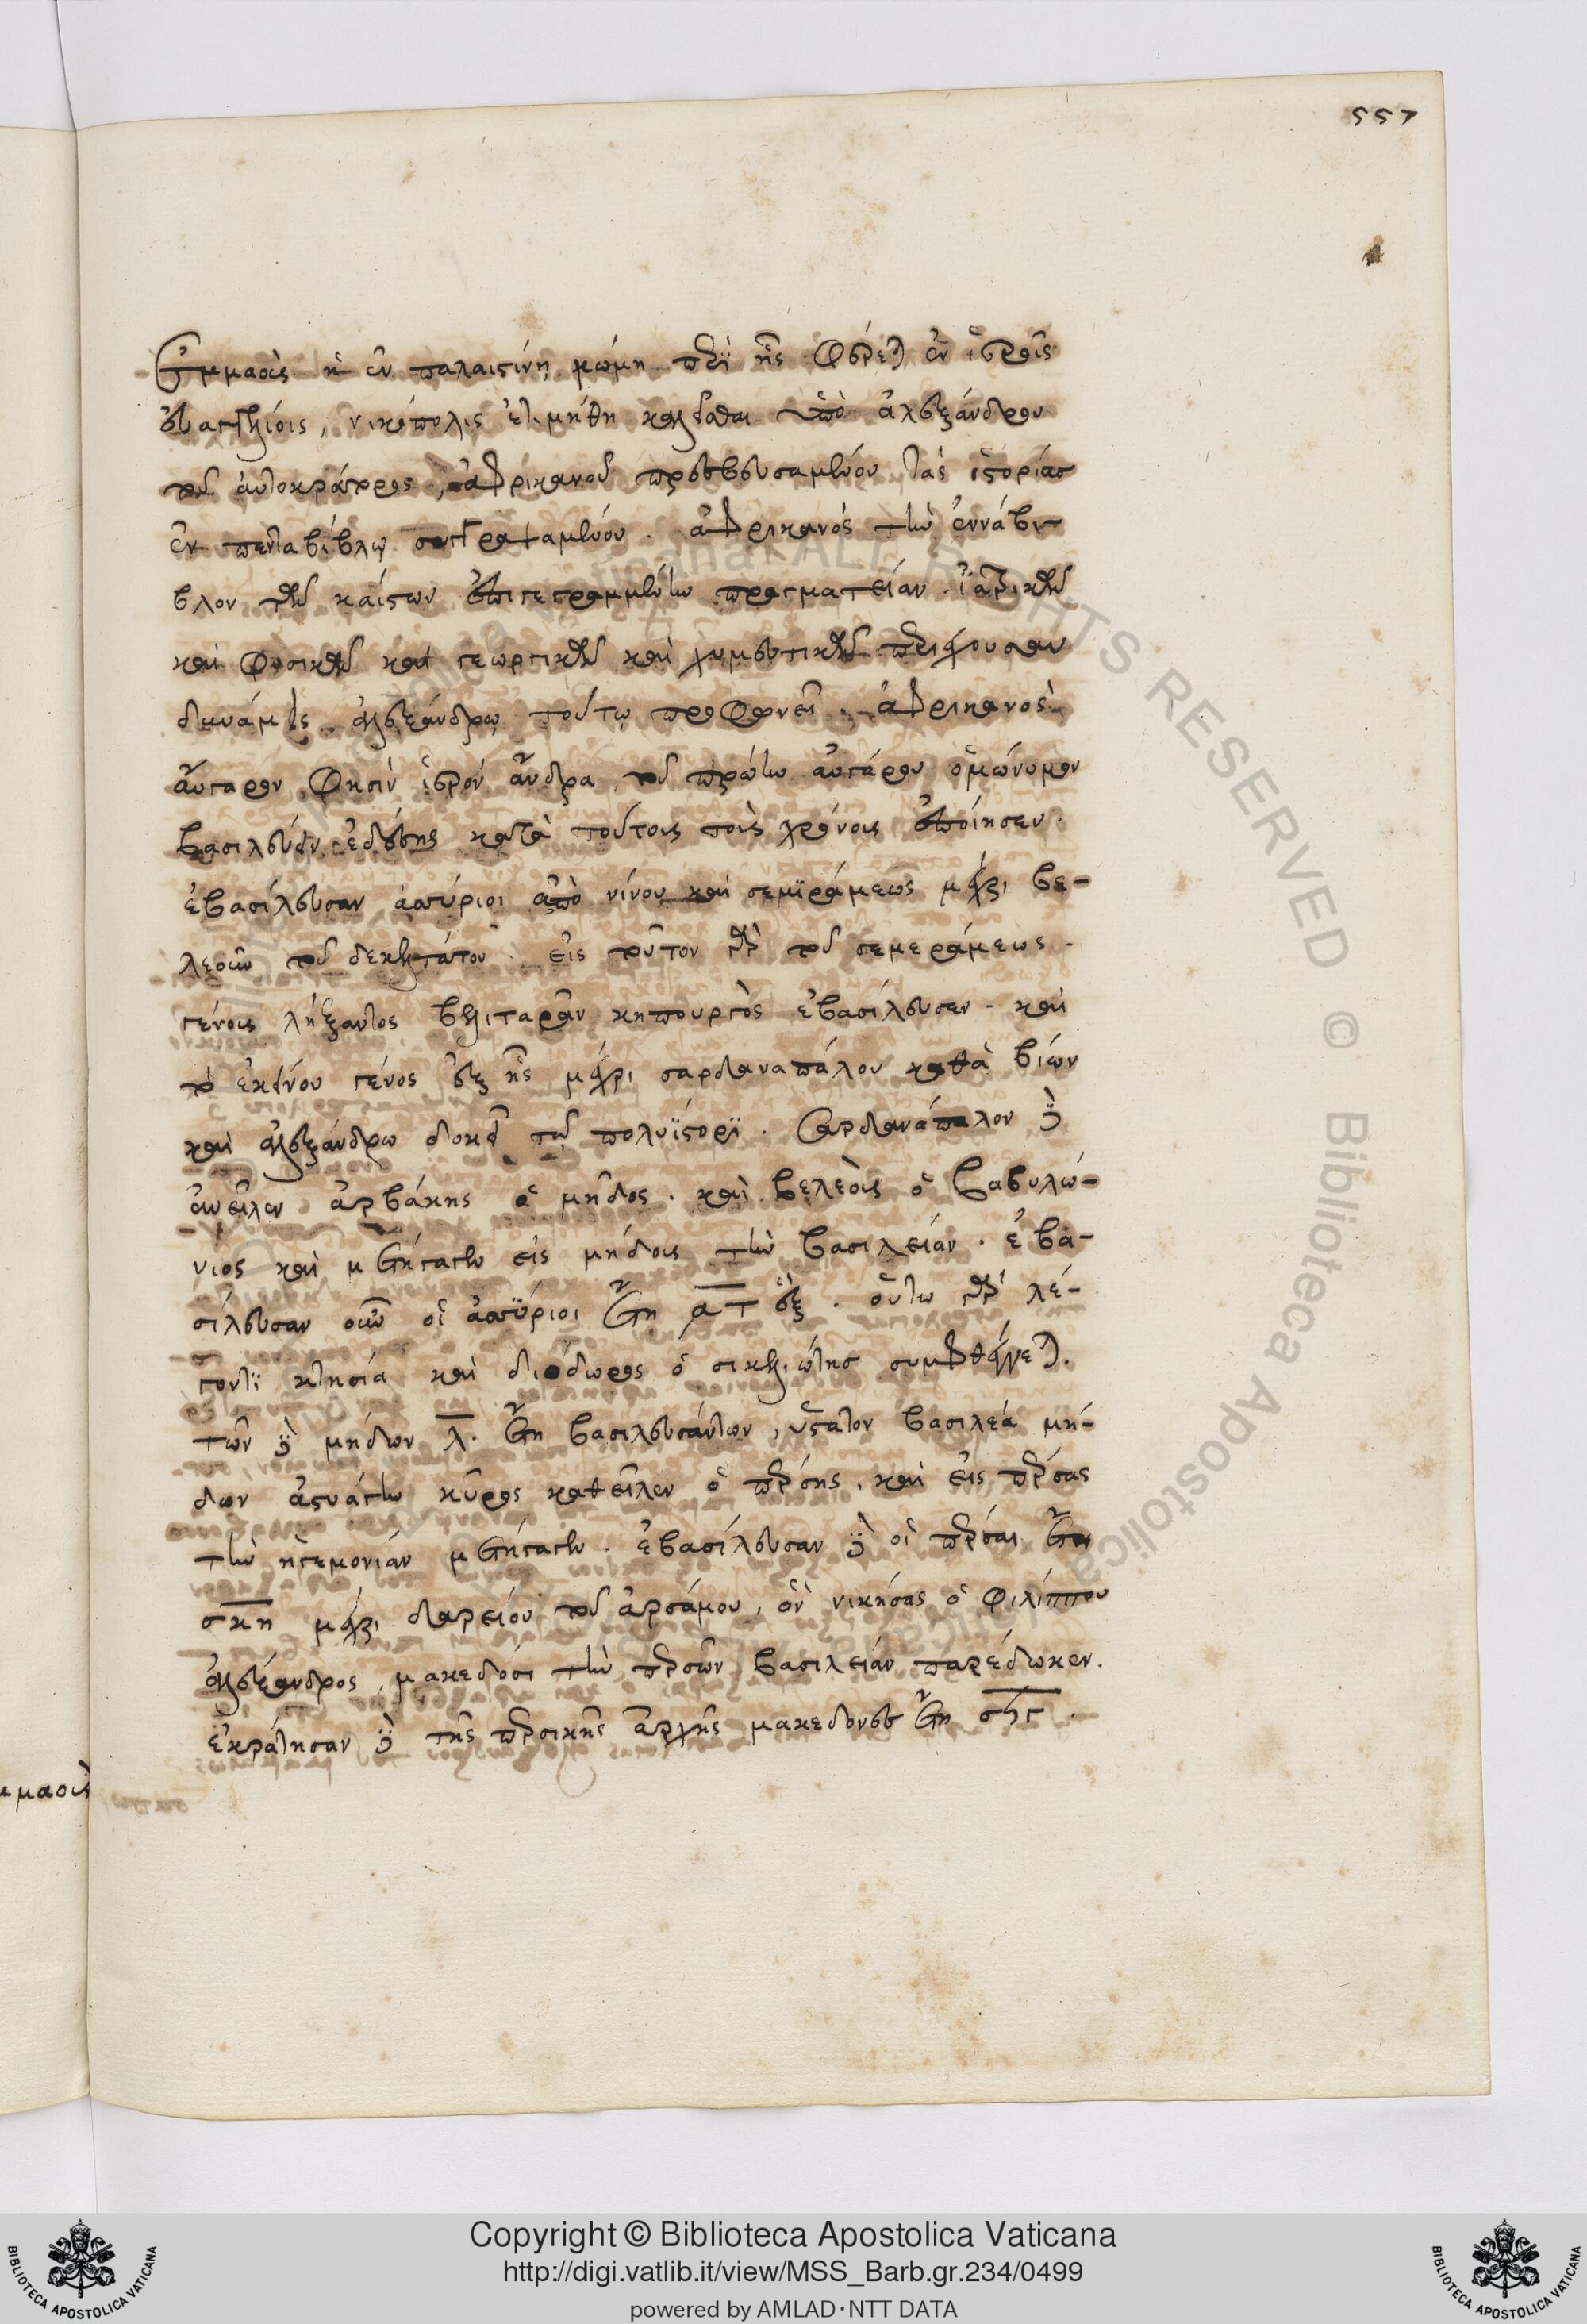 557
Ἐμμαοὺς ἡ ἐν παλαιστίνη κώμη περὶ ἧς φέρεται ἐν ἱεροῖς
εὐαγγελίοις, νικόπολις ἐτιμήθη καλεῖσθαι ὑπὸ ἀλεξάνδρου
τοῦ αὐτοκράτορος, ἀφρικανοῦ πρεσβευσαμένου τὰς ἱστορίας
ἐν πενταβίβλω συγγραψαμένου. ἀφρικανὸς τὴν ἐννάβι-
βλον τῶν καίστων ἐπιγεγραμμένην πραγματείαν. ἰατρικῶν
καὶ φυσικῶν καὶ γεωργικῶν καὶ χυμευτικῶν περιέχουσαν
δυνάμεις ἀλεξάνδρω τούτω προσφωνεῖ. ἀφρικανὸς
αὔγαρον φησὶν ἱερὸν ἄνδρα, τοῦ πρώτου αὐγάρου ὁμώνυμον
βασιλεύειν ἐδέσης κατὰ τούτους τοὺς χρόνους ἐποίησεν.
ἐβασίλευσαν ἀσύριοι ἀπὸ νίνου καὶ σεμϊράμεως μέχρι βε-
λεοῦν τοῦ δεκελτάτου. εἰς τοῦτον γὰρ τοῦ σεμεράμεως
γένους λήξαντος βελιταρὰν κηπουργὸς ἐβασίλευσεν. καὶ
τὸ ἐκείνου γένος ἑξῆς μέχρι σαρδαναπάλου καθὰ βίων
καὶ ἀλεξάνδρω δοκεῖ τῷ πολυΐστορϊ. Σαρδανάπαλον δὲ
ἀνεῖλεν ἀρβάκης ὁ μῆδος. καὶ βελεοὺς ὁ βαβυλώ-
νιος καὶ μετήγαγεν εἰς μήδους τὴν βασιλείαν. ἐβα-
σίλευσαν οὖν οἱ ἀσσύριοι ἔτη ατ ἑξ. οὕτω γὰρ λέ-
γοντϊ κτησία καὶ διόδωρος ὁ σικελιώτης συμφθέγγεται.
τῶν δὲ μήδων λ. ἔτη βασιλευσάντων, ὕστατον βασιλέα μή-
δων ἀστυάγην κῦρος καθεῖλεν ὁ πέρσης. καὶ εἰς πέρσας
τὴν ἡγεμονίαν μετήγαγεν. ἐβασίλευσαν δὲ οἱ πέρσαι ἔτη
σκη μέχρι δαρείου τοῦ ἀρσάμου, ὃν νικήσας ὁ φιλίππου
ἀλέξανδρος, μακεδόσι τὴν περσῶν βασιλείαν παρέδωκεν.
ἐκράτησαν δὲ τῆς περσικῆς ἀρχῆς μακεδόνες ἔτη σϟγ.
μμαοὺς
Copyright © Biblioteca Apostolica Vaticana
http://digi.vatlib.it/view/MSS_Barb.gr.234/0499
powered by AMLAD · NTT DATA
BIBLIOTECA APOSTOLICA VATICANA
BIBLIOTECA APOSTOLICA VATICANA